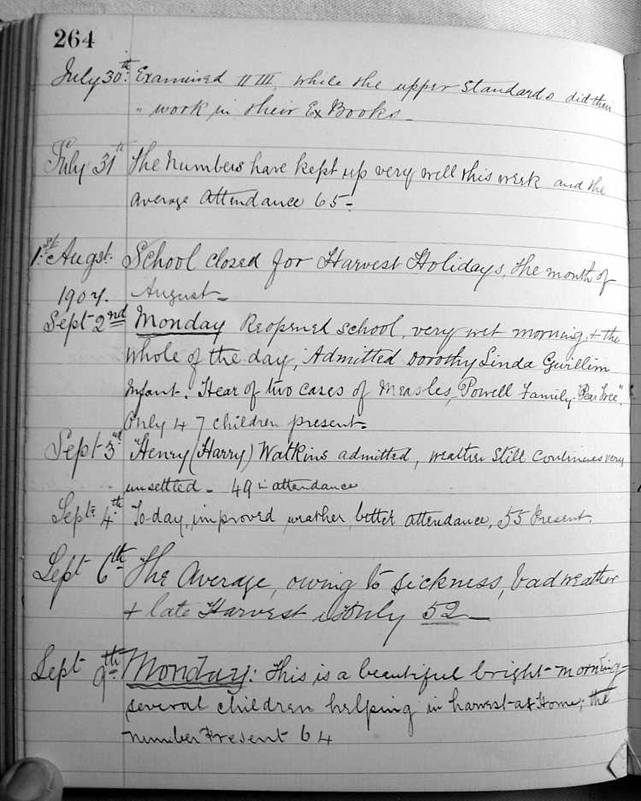 264
July 30th. Examined II III. while the upper Standards did their
" work in their Ex Books.
July 31st The Numbers have kept up very well this week and the
average Attendance 65.
1st. Augst. School closed for Harvest Holidays, the month of
1907. August.
Sept 2nd Monday Reopened school, very wet morning, & the
whole of the day, Admitted Dorothy Linda Gwillim
Infant. Hear of two cases of Measles, Powell Family "Pear Tree".
Only 47 children present.
Sept 3rd "Henry (Harry) Watkins admitted, weather still continues very
unsettled. 49 in attendance
Sept: 4th To-day, improved weather, better attendance, 55 Present.
Sept 6th The Average, owing to sickness, bad weather
& late Harvest is only 52
Sept 9th Monday: This is a beautiful bright morning
several children helping in harvest at Home; the
number Present 64